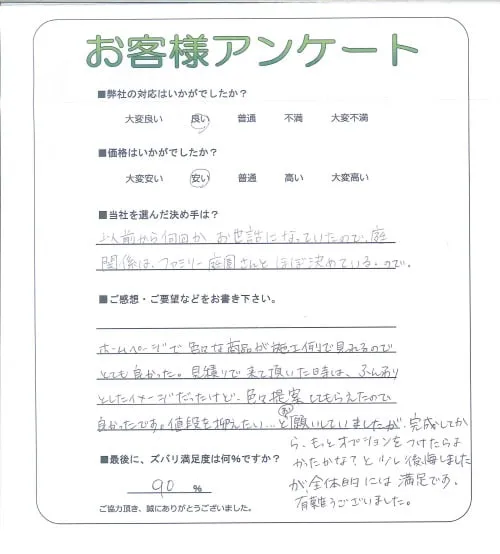 お客様アンケート
■弊社の対応はいかがでしたか？
大変良い 良い 普通 不満 大変不満
■価格はいかがでしたか？
大変安い 安い 普通 高い 大変高い
■当社を選んだ決め手は？
以前から何回か お世話になっていたので、庭
関係は、ファミリー庭園さんと ほぼ決めている。ので。
■ご感想・ご要望などをお書き下さい。
ホームページで 色々な商品が施工例で見れるので
とても良かった。見積りで来て頂いた時は、ふんわり
としたイメージだったけど、色々提案してもらえたので
良かったです。値段を抑えたい…とお願いしていましたが、完成してか
ら、もっとオプションをつけたらよ
かったかな？と少し後悔しました
が全体的には満足です。
有難うございました。
■最後に、ズバリ満足度は何%ですか？
90 %
ご協力頂き、誠にありがとうございました。